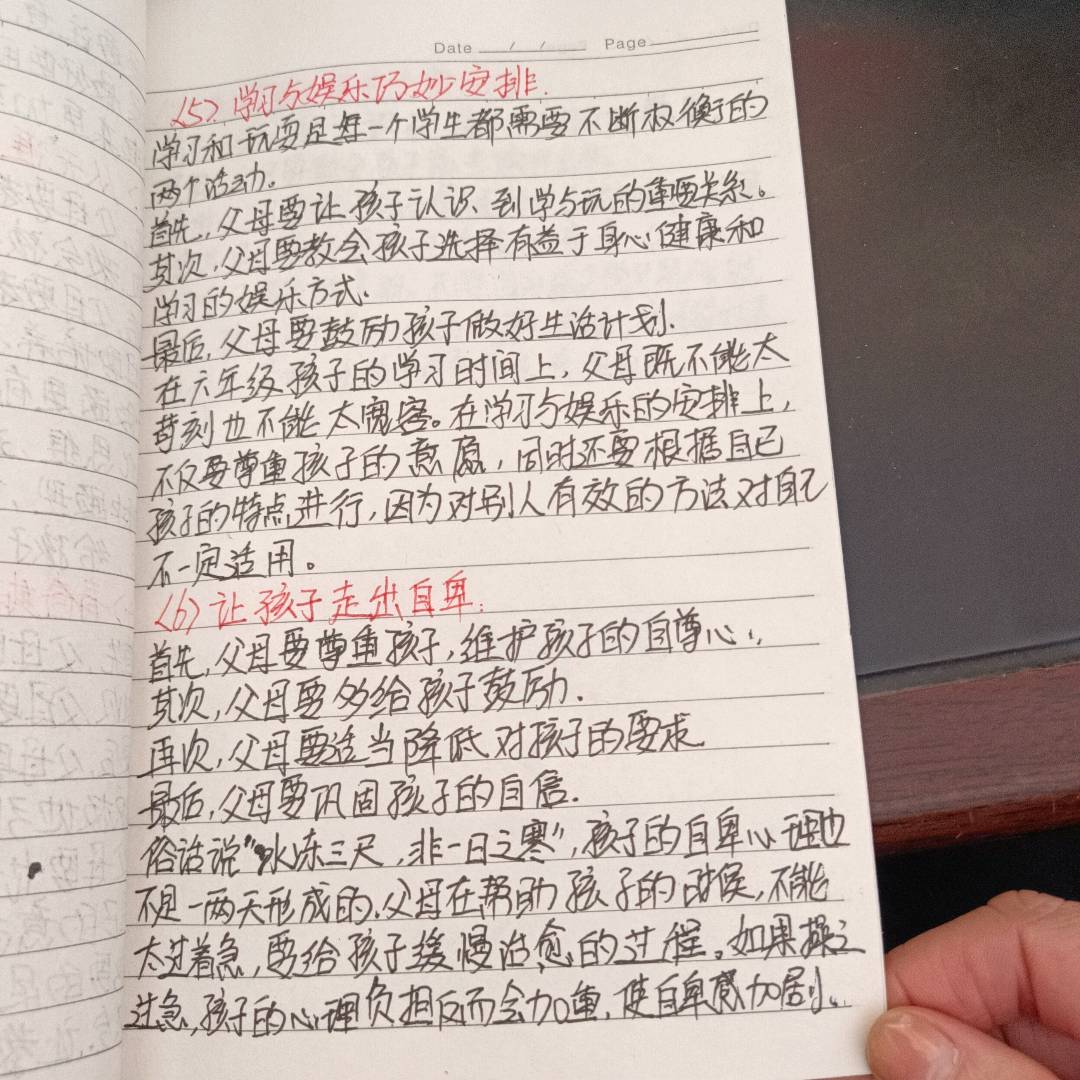 Date / / Page
(5) 学习与娱乐巧妙安排.
学习和玩耍是每一个学生都需要不断权衡的
两个活动。
首先,父母要让孩子认识到学与玩的重要关系。
其次,父母要教会孩子选择有益于身心健康和
学习的娱乐方式.
最后,父母要鼓励孩子做好生活计划.
在六年级孩子的学习时间上,父母既不能太
苛刻也不能太宽容。在学习与娱乐的安排上,
不仅要尊重孩子的意愿,同时还要根据自己
孩子的特点进行,因为对别人有效的方法对自己
不一定适用。
(6) 让孩子走出自卑.
首先,父母要尊重孩子,维护孩子的自尊心.
其次,父母要多给孩子鼓励.
再次,父母要适当降低对孩子的要求
最后,父母要巩固孩子的自信.
俗话说"冰冻三尺,非一日之寒",孩子的自卑心理也
不是一两天形成的.父母在帮助孩子的时候,不能
太过着急,要给孩子缓慢治愈的过程。如果操之
过急,孩子的心理负担反而会加重,使自卑感加剧.